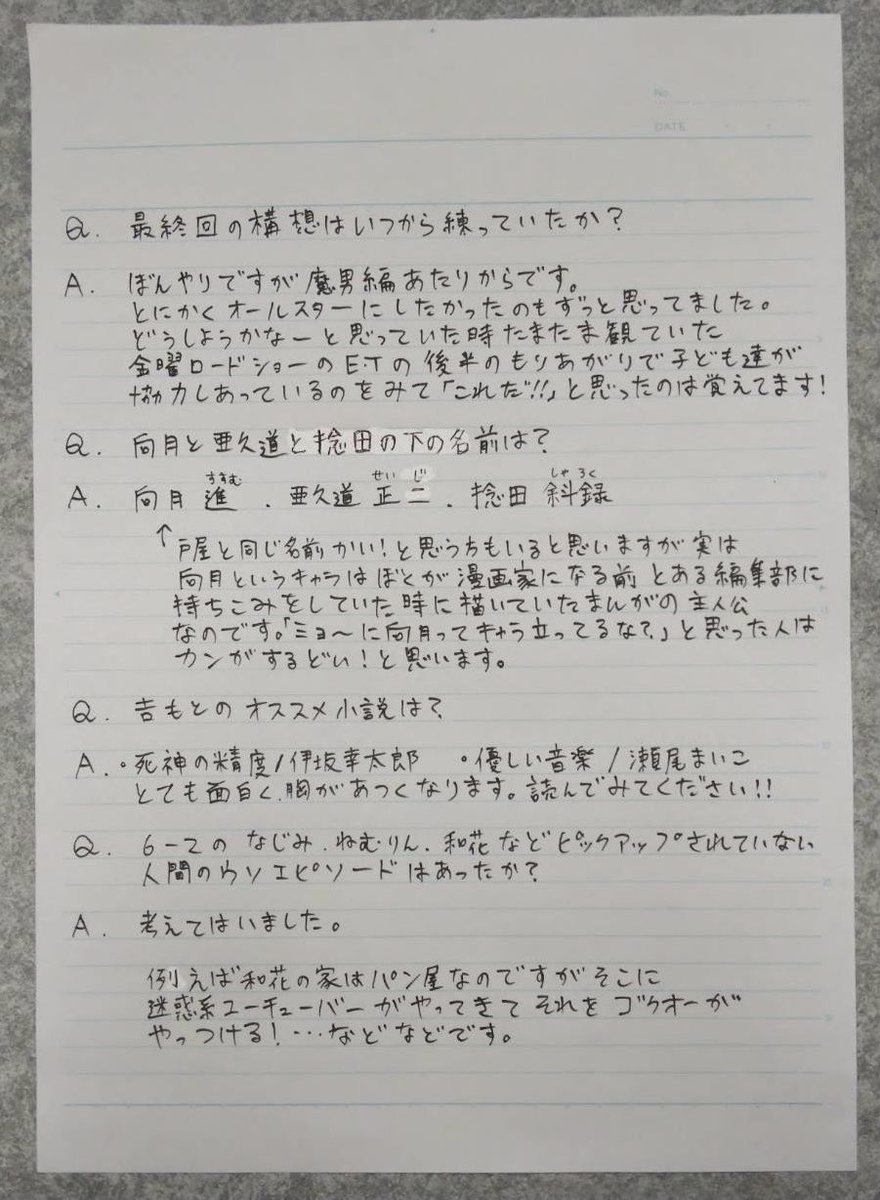 No.
DATE
Q. 最終回の構想はいつから練っていたか?
A. ぼんやりですが魔男編あたりからです。
とにかくオールスターにしたかったのもずっと思ってました。
どうしようかなーと思っていた時たまたま観ていた
金曜ロードショーのE.Tの後半のもりあがりで子ども達が
協力しあっているのをみて「これだ!!」と思ったのは覚えてます!
Q. 向月と亜久道と捻田の下の名前は?
A. 向月 進(すすむ). 亜久道 正二(せいじ). 捻田 斜録(しゃろく)
↑戸屋と同じ名前かい!と思う方もいると思いますが実は
向月というキャラはぼくが漫画家になる前とある編集部に
持ちこみをしていた時に描いていたまんがの主人公
なのです。「ミョ〜に向月ってキャラ立ってるな?」と思った人は
カンがするどい!と思います。
Q. 吉もとのオススメ小説は?
A. •死神の精度/伊坂幸太郎 •優しい音楽/瀬尾まいこ
とても面白く、胸があつくなります。読んでみてください!!
Q. 6-2の なじみ.ねむりん.和花などピックアップされていない
人間のウソエピソードはあったか?
A. 考えてはいました。
例えば和花の家はパン屋なのですがそこに
迷惑系ユーチューバーがやってきてそれをゴクオーが
やっつける!…などなどです。